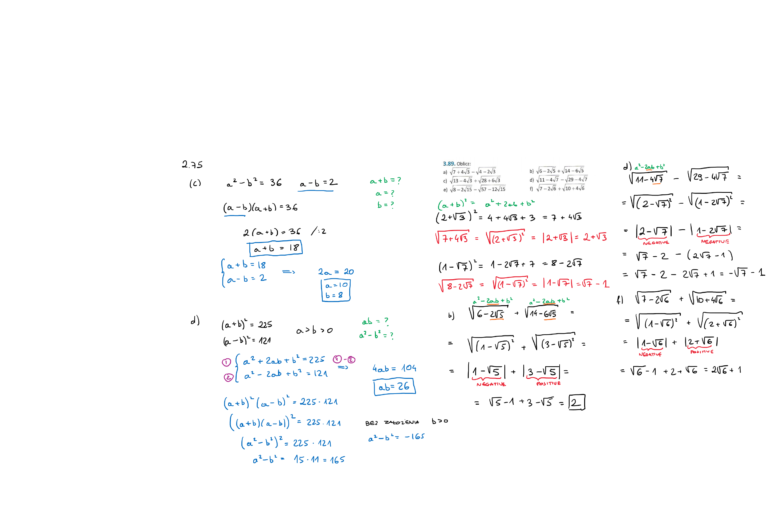 2.75
(c) a² - b² = 36 a - b = 2
a + b = ?
a = ?
b = ?
(a - b)(a + b) = 36
2(a + b) = 36 /:2
a + b = 18
{ a + b = 18
a - b = 2
=> 2a = 20
a = 10
b = 8
d) (a + b)² = 225
(a - b)² = 121
a > b > 0
ab = ?
a² - b² = ?
① { a² + 2ab + b² = 225 ① - ②
② a² - 2ab + b² = 121 =>
4ab = 104
ab = 26
(a + b)² (a - b)² = 225 · 121
((a + b)(a - b))² = 225 · 121
(a² - b²)² = 225 · 121
a² - b² = 15 · 11 = 165
BEZ ZAŁOŻENIA b > 0
a² - b² = -165
3.89. Oblicz:
(a + b)² = a² + 2ab + b²
(2 + √3)² = 4 + 4√3 + 3 = 7 + 4√3
√(7 + 4√3) = √((2 + √3)²) = |2 + √3| = 2 + √3
(1 - √7)² = 1 - 2√7 + 7 = 8 - 2√7
√(8 - 2√7) = √((1 - √7)²) = |1 - √7| = √7 - 1
a² - 2ab + b² a² - 2ab + b²
b) √(6 - 2√5) + √(14 - 6√5) =
= √((1 - √5)²) + √((3 - √5)²) =
= |1 - √5| + |3 - √5| =
NEGATIVE POSITIVE
= √5 - 1 + 3 - √5 = 2
a² - 2ab + b²
d) √(11 - 4√7) - √(29 - 4√7) =
= √((2 - √7)²) - √((1 - 2√7)²) =
= |2 - √7| - |1 - 2√7| =
NEGATIVE NEGATIVE
= √7 - 2 - (2√7 - 1)
= √7 - 2 - 2√7 + 1 = -√7 - 1
f) √(7 - 2√6) + √(10 + 4√6) =
= √((1 - √6)²) + √((2 + √6)²) =
= |1 - √6| + |2 + √6| =
NEGATIVE POSITIVE
= √6 - 1 + 2 + √6 = 2√6 + 1